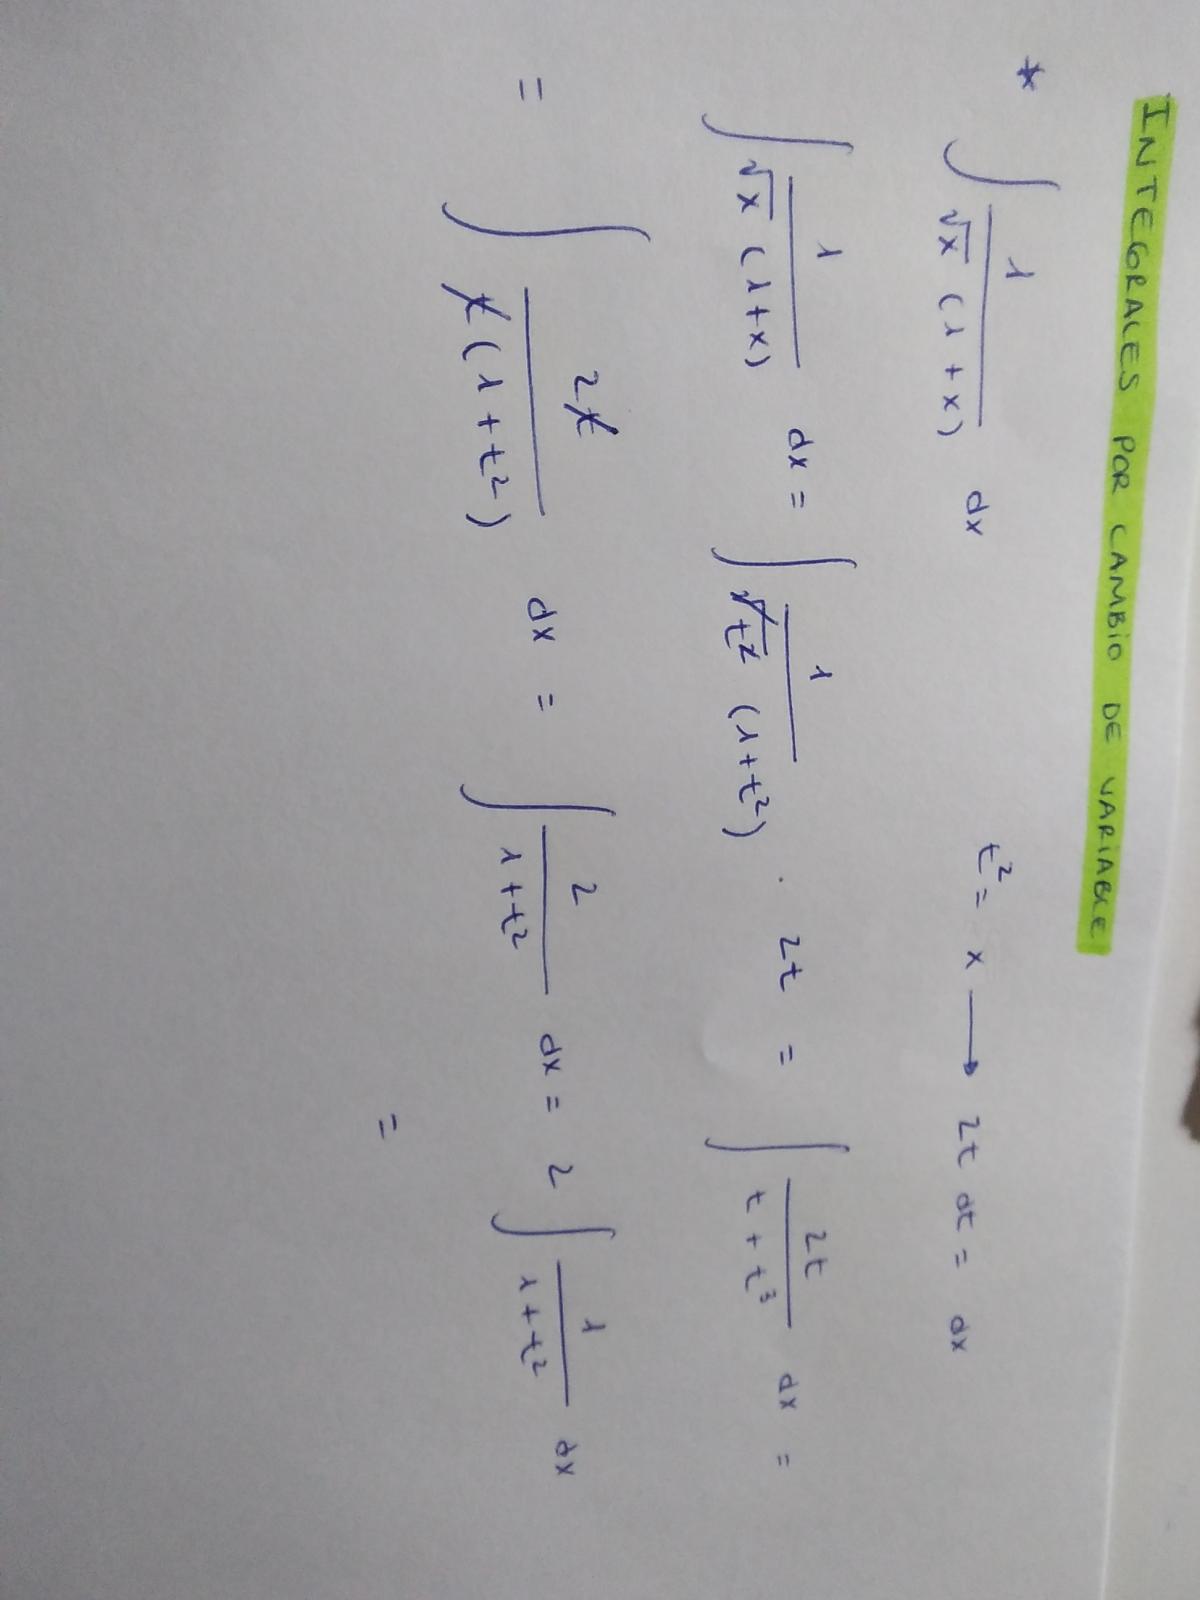 INTEGRALES POR CAMBIO DE VARIABLE
* ∫ 1/(√x (1+x)) dx t² = x → 2t dt = dx
∫ 1/(√x (1+x)) dx = ∫ 1/(√t² (1+t²)) · 2t = ∫ 2t/(t + t³) dx =
= ∫ 2t/(t(1+t²)) dx = ∫ 2/(1+t²) dx = 2 ∫ 1/(1+t²) dx
=